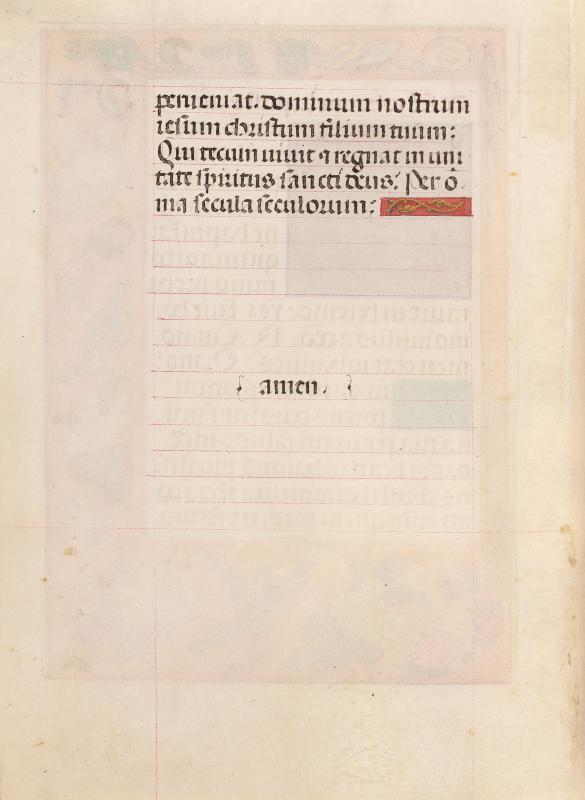 perueniat. dominum nostrum
iesum christum filium tuum:
Qui tecum uiuit ⁊ regnat in uni
tate spiritus sancti deus: Per o̅
nia secula seculorum:
amen.